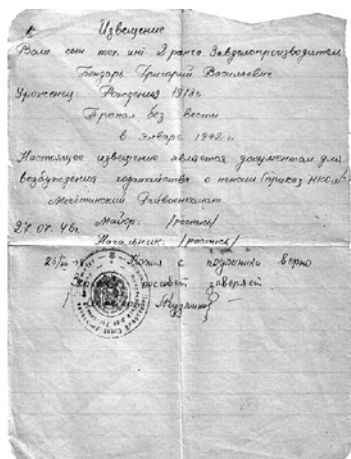 Извещение
Ваш сын тех. инт. 2 ранга Завделопроизводитель
Бондарь Григорий Васильевич
Уроженец: Рождения 1918г
Пропал без вести
в январе 1942 г.
Настоящее извещение является документом для
возбуждения ходатайства о пенсии (приказ НКО №)
Райвоенкомат
27.07.46г. Майор: /роспись/
Начальник: /роспись/
Копия с подлинника верно
заверяет